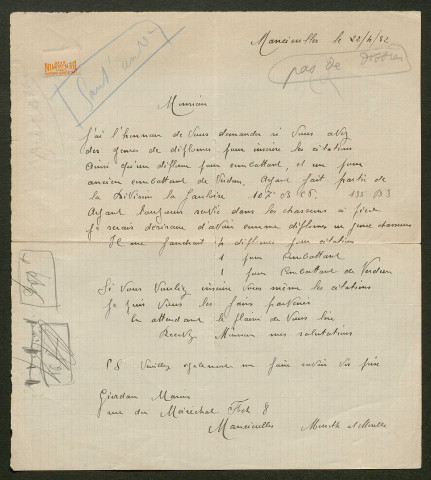 Mancieulles le 22/4/32
pas de
Monsieur
J'ai l'honneur de vous demander si vous avez
des genres de diplômes pour inscrire les citations
ainsi qu'un diplôme pour combattant, et un pour
ancien combattant de Verdun. Ayant fait partie de
la Division la Gauloise 107e B C P.
Ayant toujours servie dans les chasseurs à pied
je serais désireux d'avoir comme diplômes un genre chasseurs
Il me faudrait 4 diplômes pour citations
1 pour combattant
1 pour combattant de Verdun
Si vous vouliez inscrire vous même les citations
je puis vous les faire parvenir
En attendant le plaisir de vous lire
Recevez Monsieur mes salutations
PS Veuillez également me faire savoir vos prix
rue du Maréchal Foch 8
Mancieulles Meurthe et Moselle